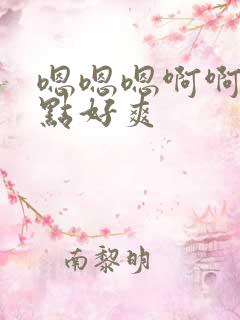 嗯嗯嗯啊啊
點好爽
南黎明